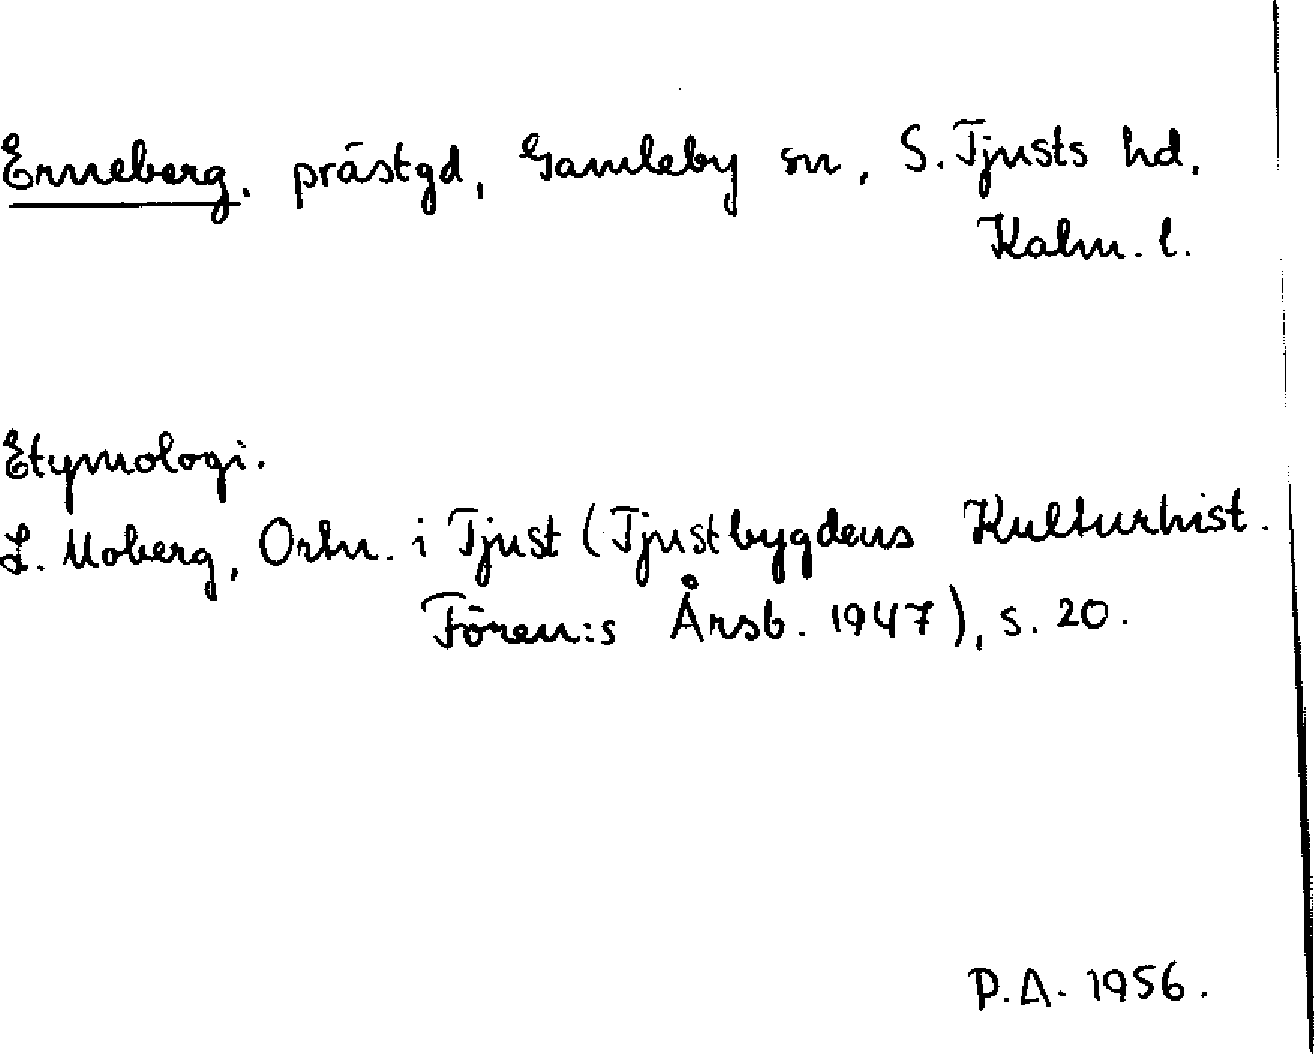 Erneberg. prästgd, Gamleby sn, S. Tjusts hd.
Kalm. l.
Etymologi.
L. Moberg, Ortn. i Tjust (Tjustbygdens Kulturhist.
Fören:s Årsb. 1947), s. 20.
P.A. 1956.